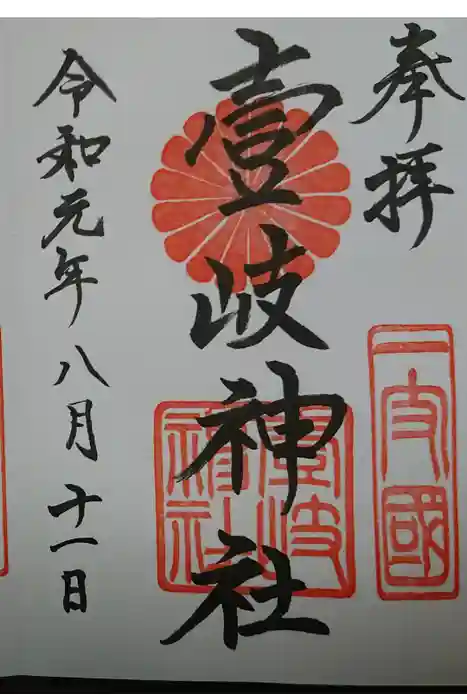 奉拝
一支國
壹岐神社
壹岐神社
令和元年八月十一日